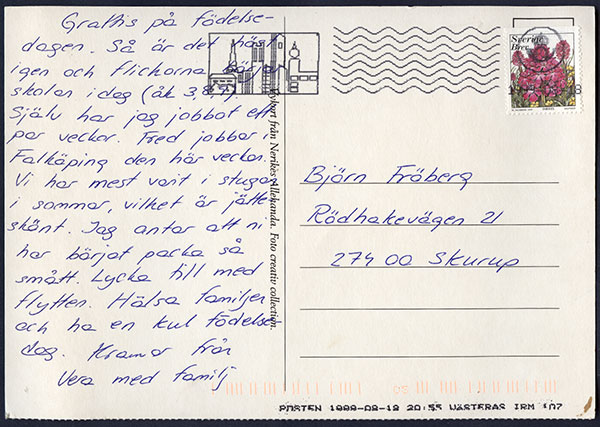 Grattis på födelse-
dagen. Så är det höst
igen och flickorna börjar
skolan idag (åk 3,8,9).
Själv har jag jobbat ett
par veckor. Fred jobbar i
Falköping den här veckan.
Vi har mest varit i stugan
i sommar, vilket är jätte
skönt. Jag antar att ni
har börjat packa så
smått. Lycka till med
flytten. Hälsa familjen
och ha en kul födelse
dag. Kramar från
Vera med familj
Vykort från Nerikes Allehanda. Foto creativ collection.
Sverige
Brev
Björn Fröberg
Rödhakevägen 21
274 00 Skurup
POSTEN 1999-08-18 20:55 VÄSTERÅS IRM '07